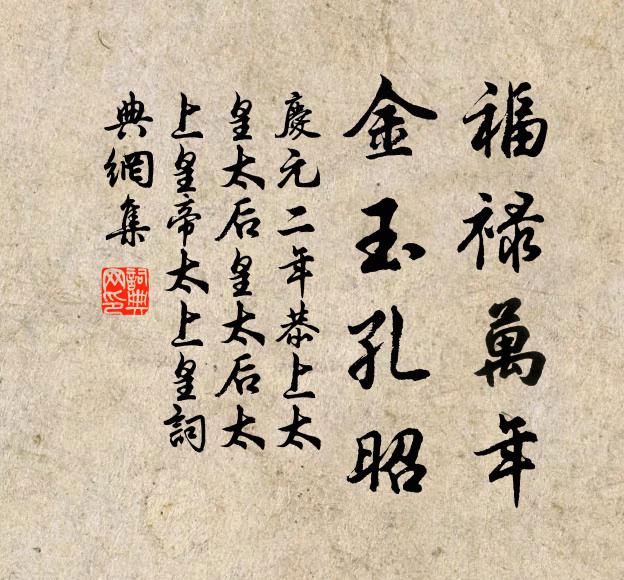 福祿萬年
金玉孔昭
慶元二年恭上太
皇太后皇太后太
上皇帝太上皇詞
典網集
詞典网印